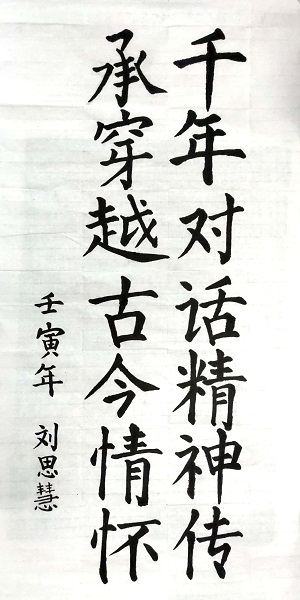 千年对话精神传
承穿越古今情怀
壬寅年 刘思慧